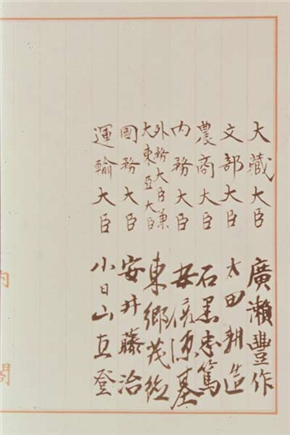 大藏大臣 廣瀨豐作
文部大臣 太田耕造
農商大臣 石黑忠篤
内務大臣 安倍源基
外務大臣兼
大東亞大臣 東鄕茂德
國務大臣 安井藤治
運輸大臣 小日山直登
内閣